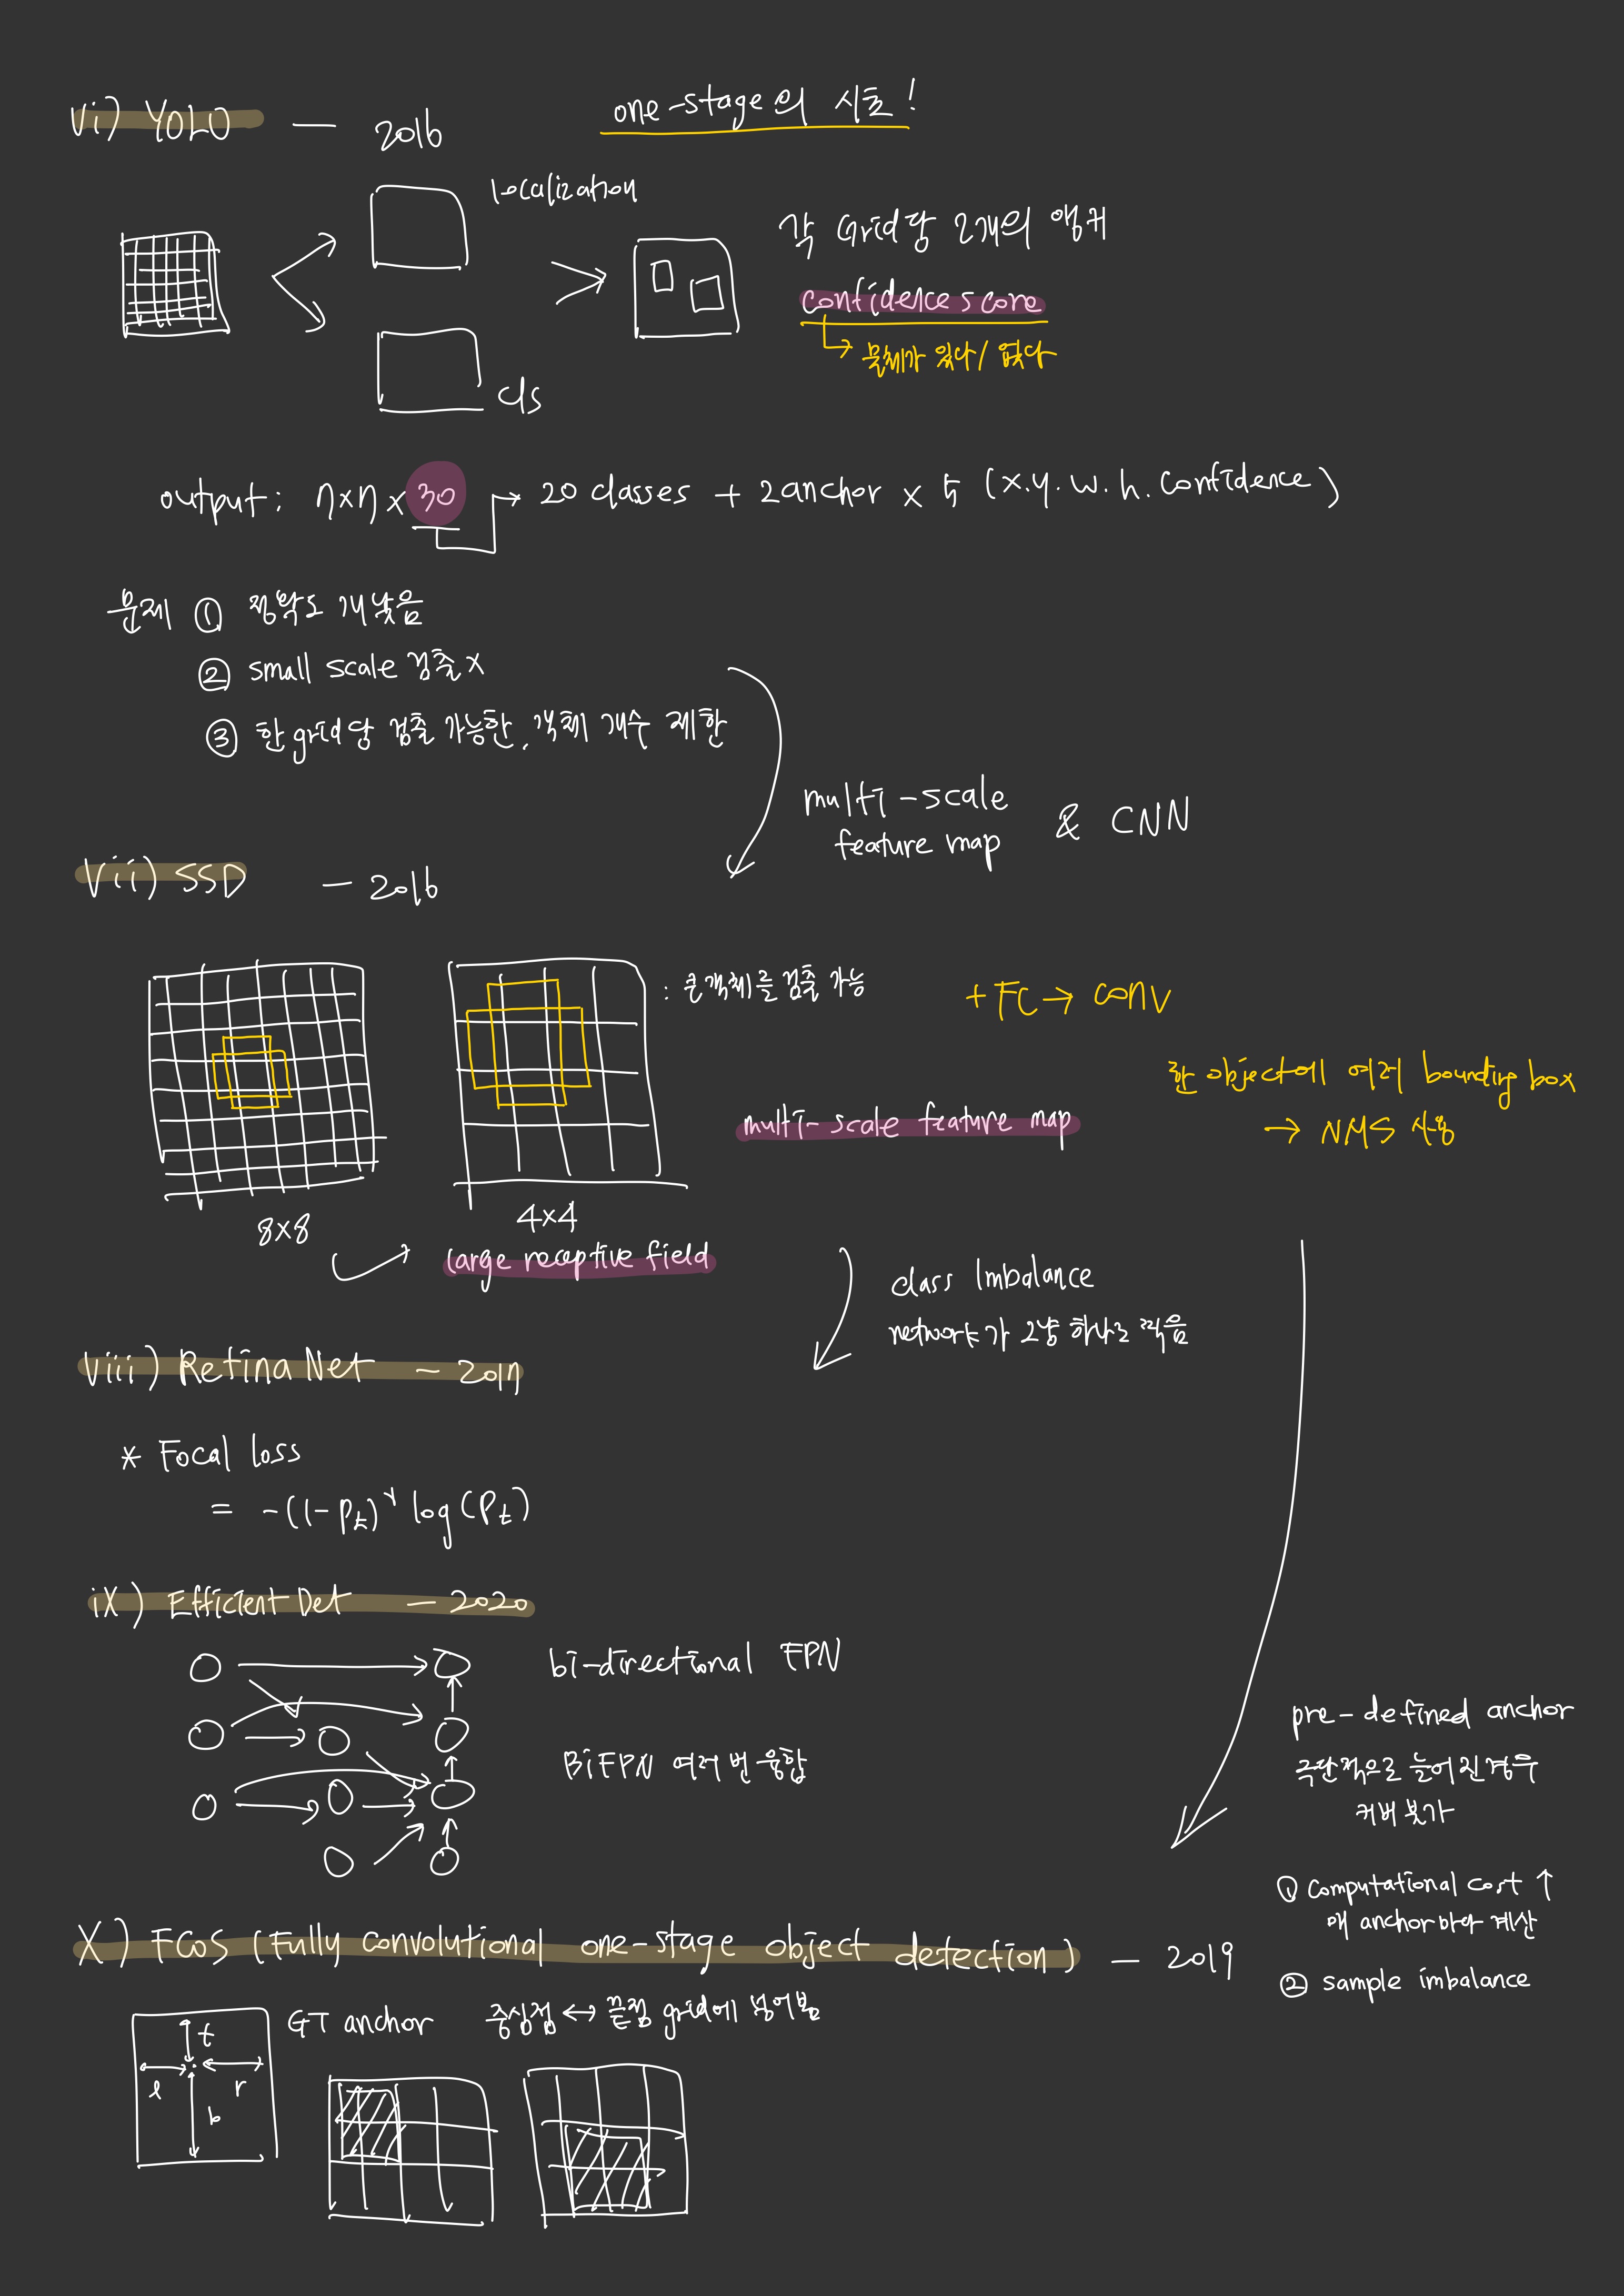 vi) YOLO — 2016
one-stage의 시초!
localization
cls
각 Grid당 2개의 앵커
confidence score
→ 물체가 있다/없다
output: n×n×30 → 20 classes + 2anchor × 5 (x.y.w.h.confidence)
문제 ① 정확도 개낮음
② small scale 검출 x
③ 한 grid당 검출 가능한 객체 개수 제한
multi-scale
feature map & CNN
vii) SSD — 2016
: 큰 객체를 검출 가능
+ FC → conv
한 object에 여러 bounding box
→ NMS 사용
multi-scale feature map
8×8
4×4
large receptive field
class Imbalance
network가 2낭 하나로
viii) Retina Net — 2017
* Focal loss
= -(1-Pt)^γ log(Pt)
ix) EfficientDet — 2020
bi-directional FPN
BiFPN 여러번 융합
pre-defined anchor
극단적으로 늘어진 경우
커버 불가
① computational cost ↑
매 anchor마다 계산
② sample imbalance
X) FCOS (Fully convolutional one-stage object detection) — 2019
GT anchor 중심점 ↔ 특정 grid에
t
l r
b